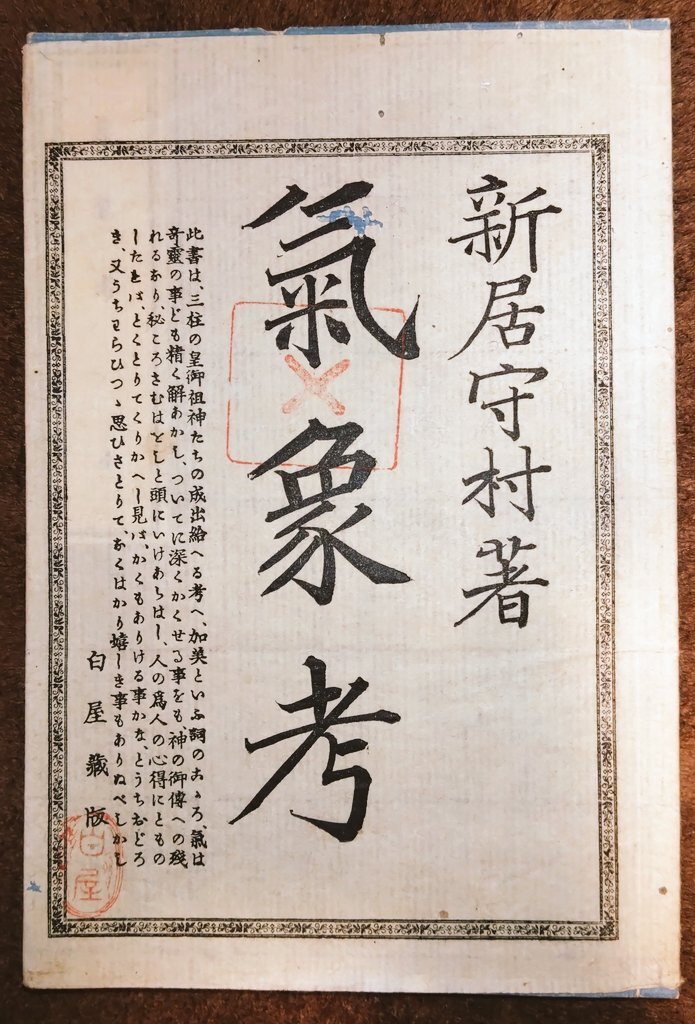 新居守村著
氣象考
此書は、三柱の皇御祖神たちの成出給へる考へ、加美といふ詞のおゝろ、氣は
奇靈の事ども精く解あかし、ついてに深くかくせる事をも、神の御傳への殘
れるあり、秘ころさむはとしと頭にいけあらはし、人の爲人の心得にともの
したれはとくとりてくりかへし見は、かくもありける事かな、とうちおどろ
き、又うちわらひつゝ思ひさとりて、おくはかり嬉しき事もありぬべしかし
白屋藏版
白屋